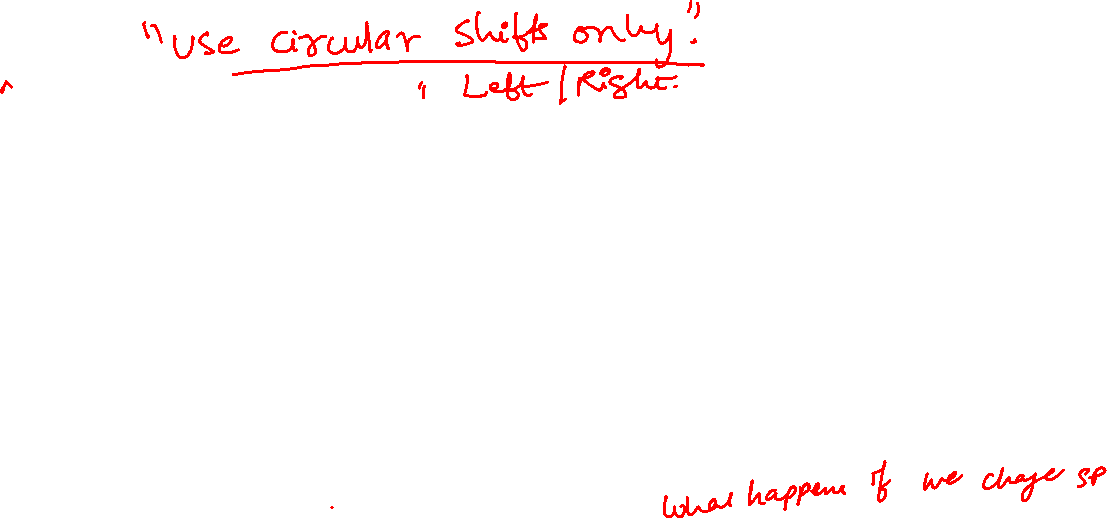 "use circular shifts only."
" Left/Right.
what happens if we change SP